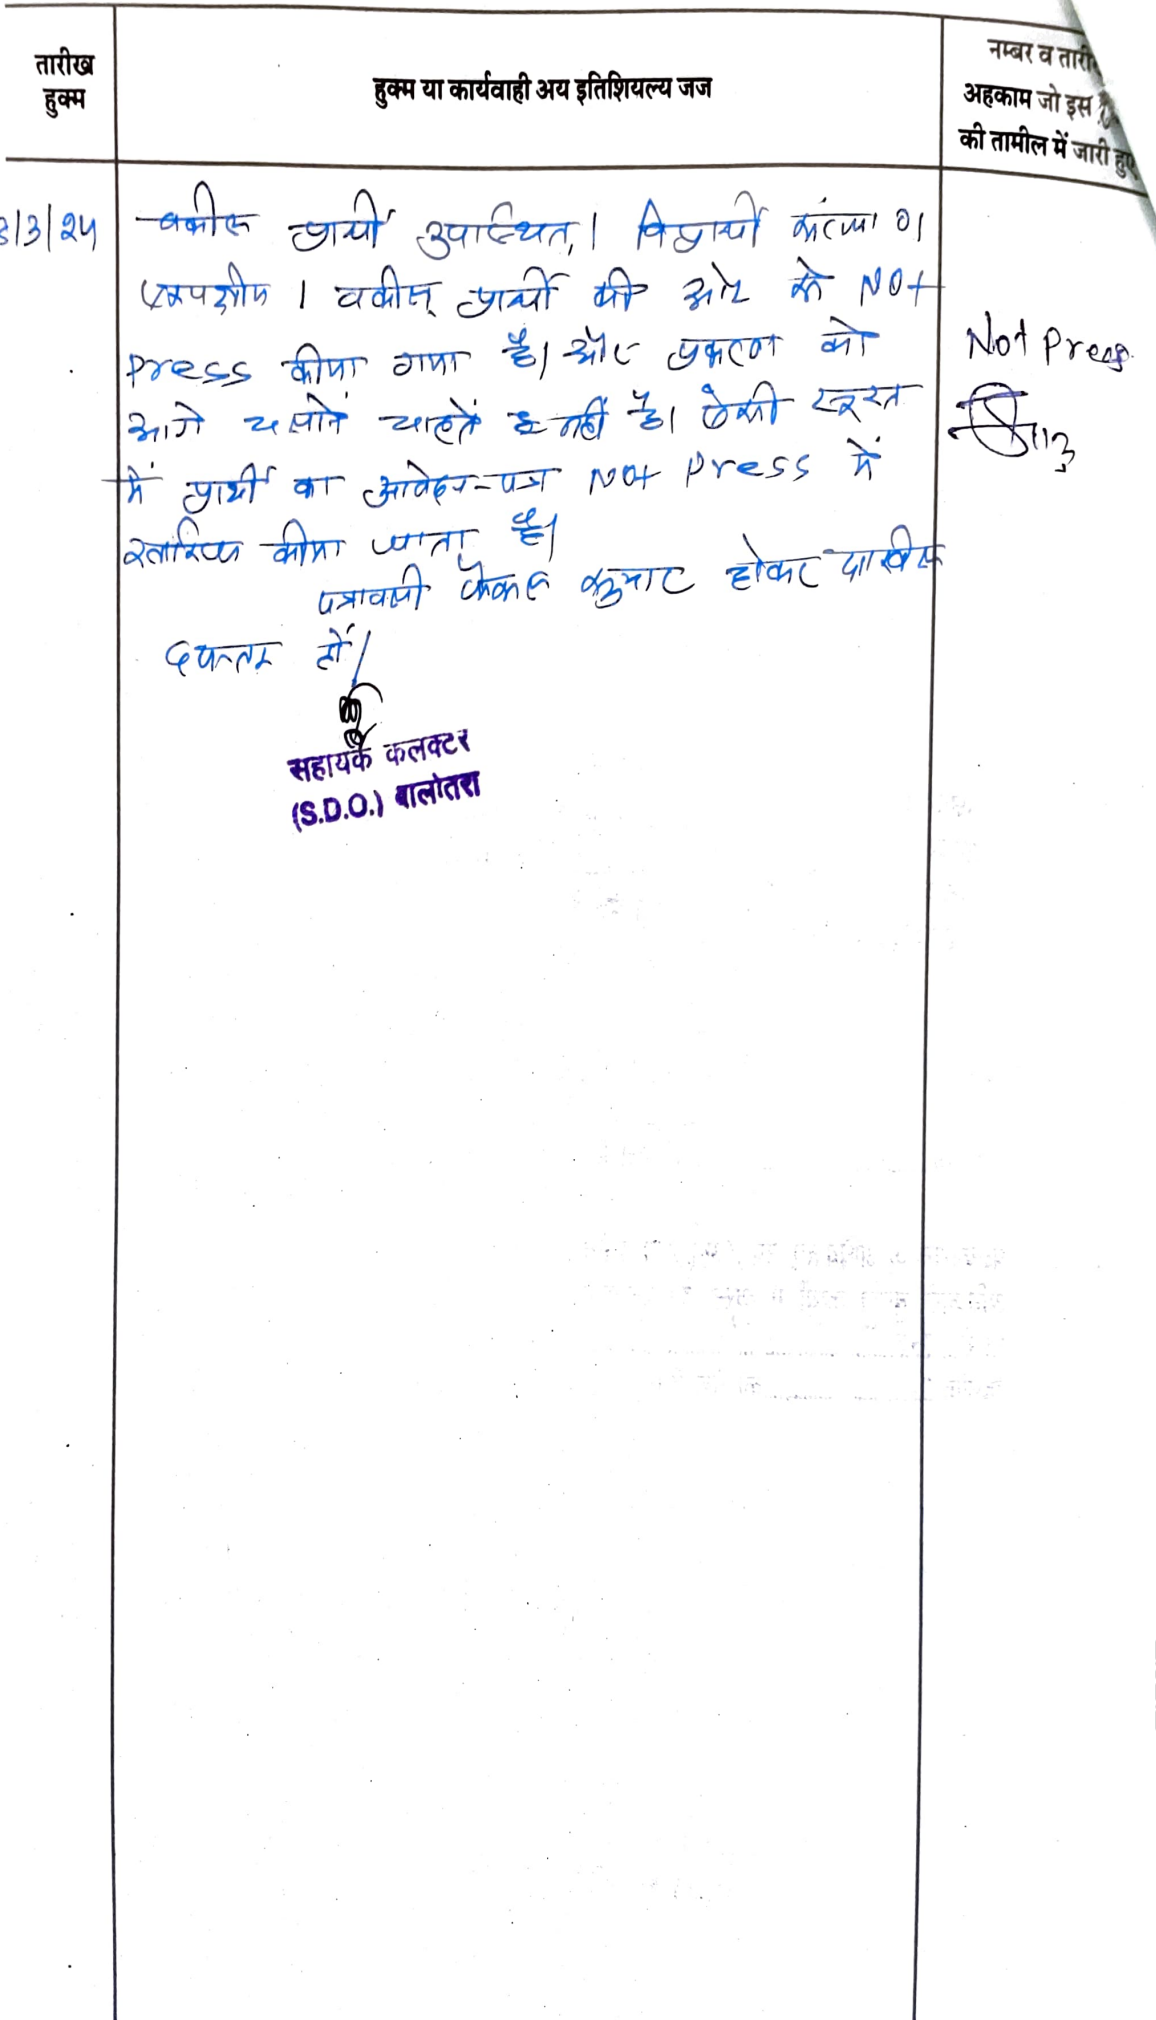 तारीख
हुक्म
हुक्म या कार्यवाही अय इतिशियल्य जज
नम्बर व तारी
अहकाम जो इस
की तामील में जारी हुए
3/3/25
वकील प्रार्थी उपस्थित। विप्रार्थी संख्या 01
एकपक्षीय। वकील प्रार्थी की ओर से Not
Press कीया गया है। और प्रकरण को
आगे चलाने चाहते नहीं है। ऐसी सूरत
में प्रार्थी का आवेदन-पत्र Not Press में
खारिज कीया जाता है।
पत्रावली फैसल शुमार होकर दाखील
दफ्तर हों।
Not Press
सहायक कलक्टर
(S.D.O.) बालोतरा